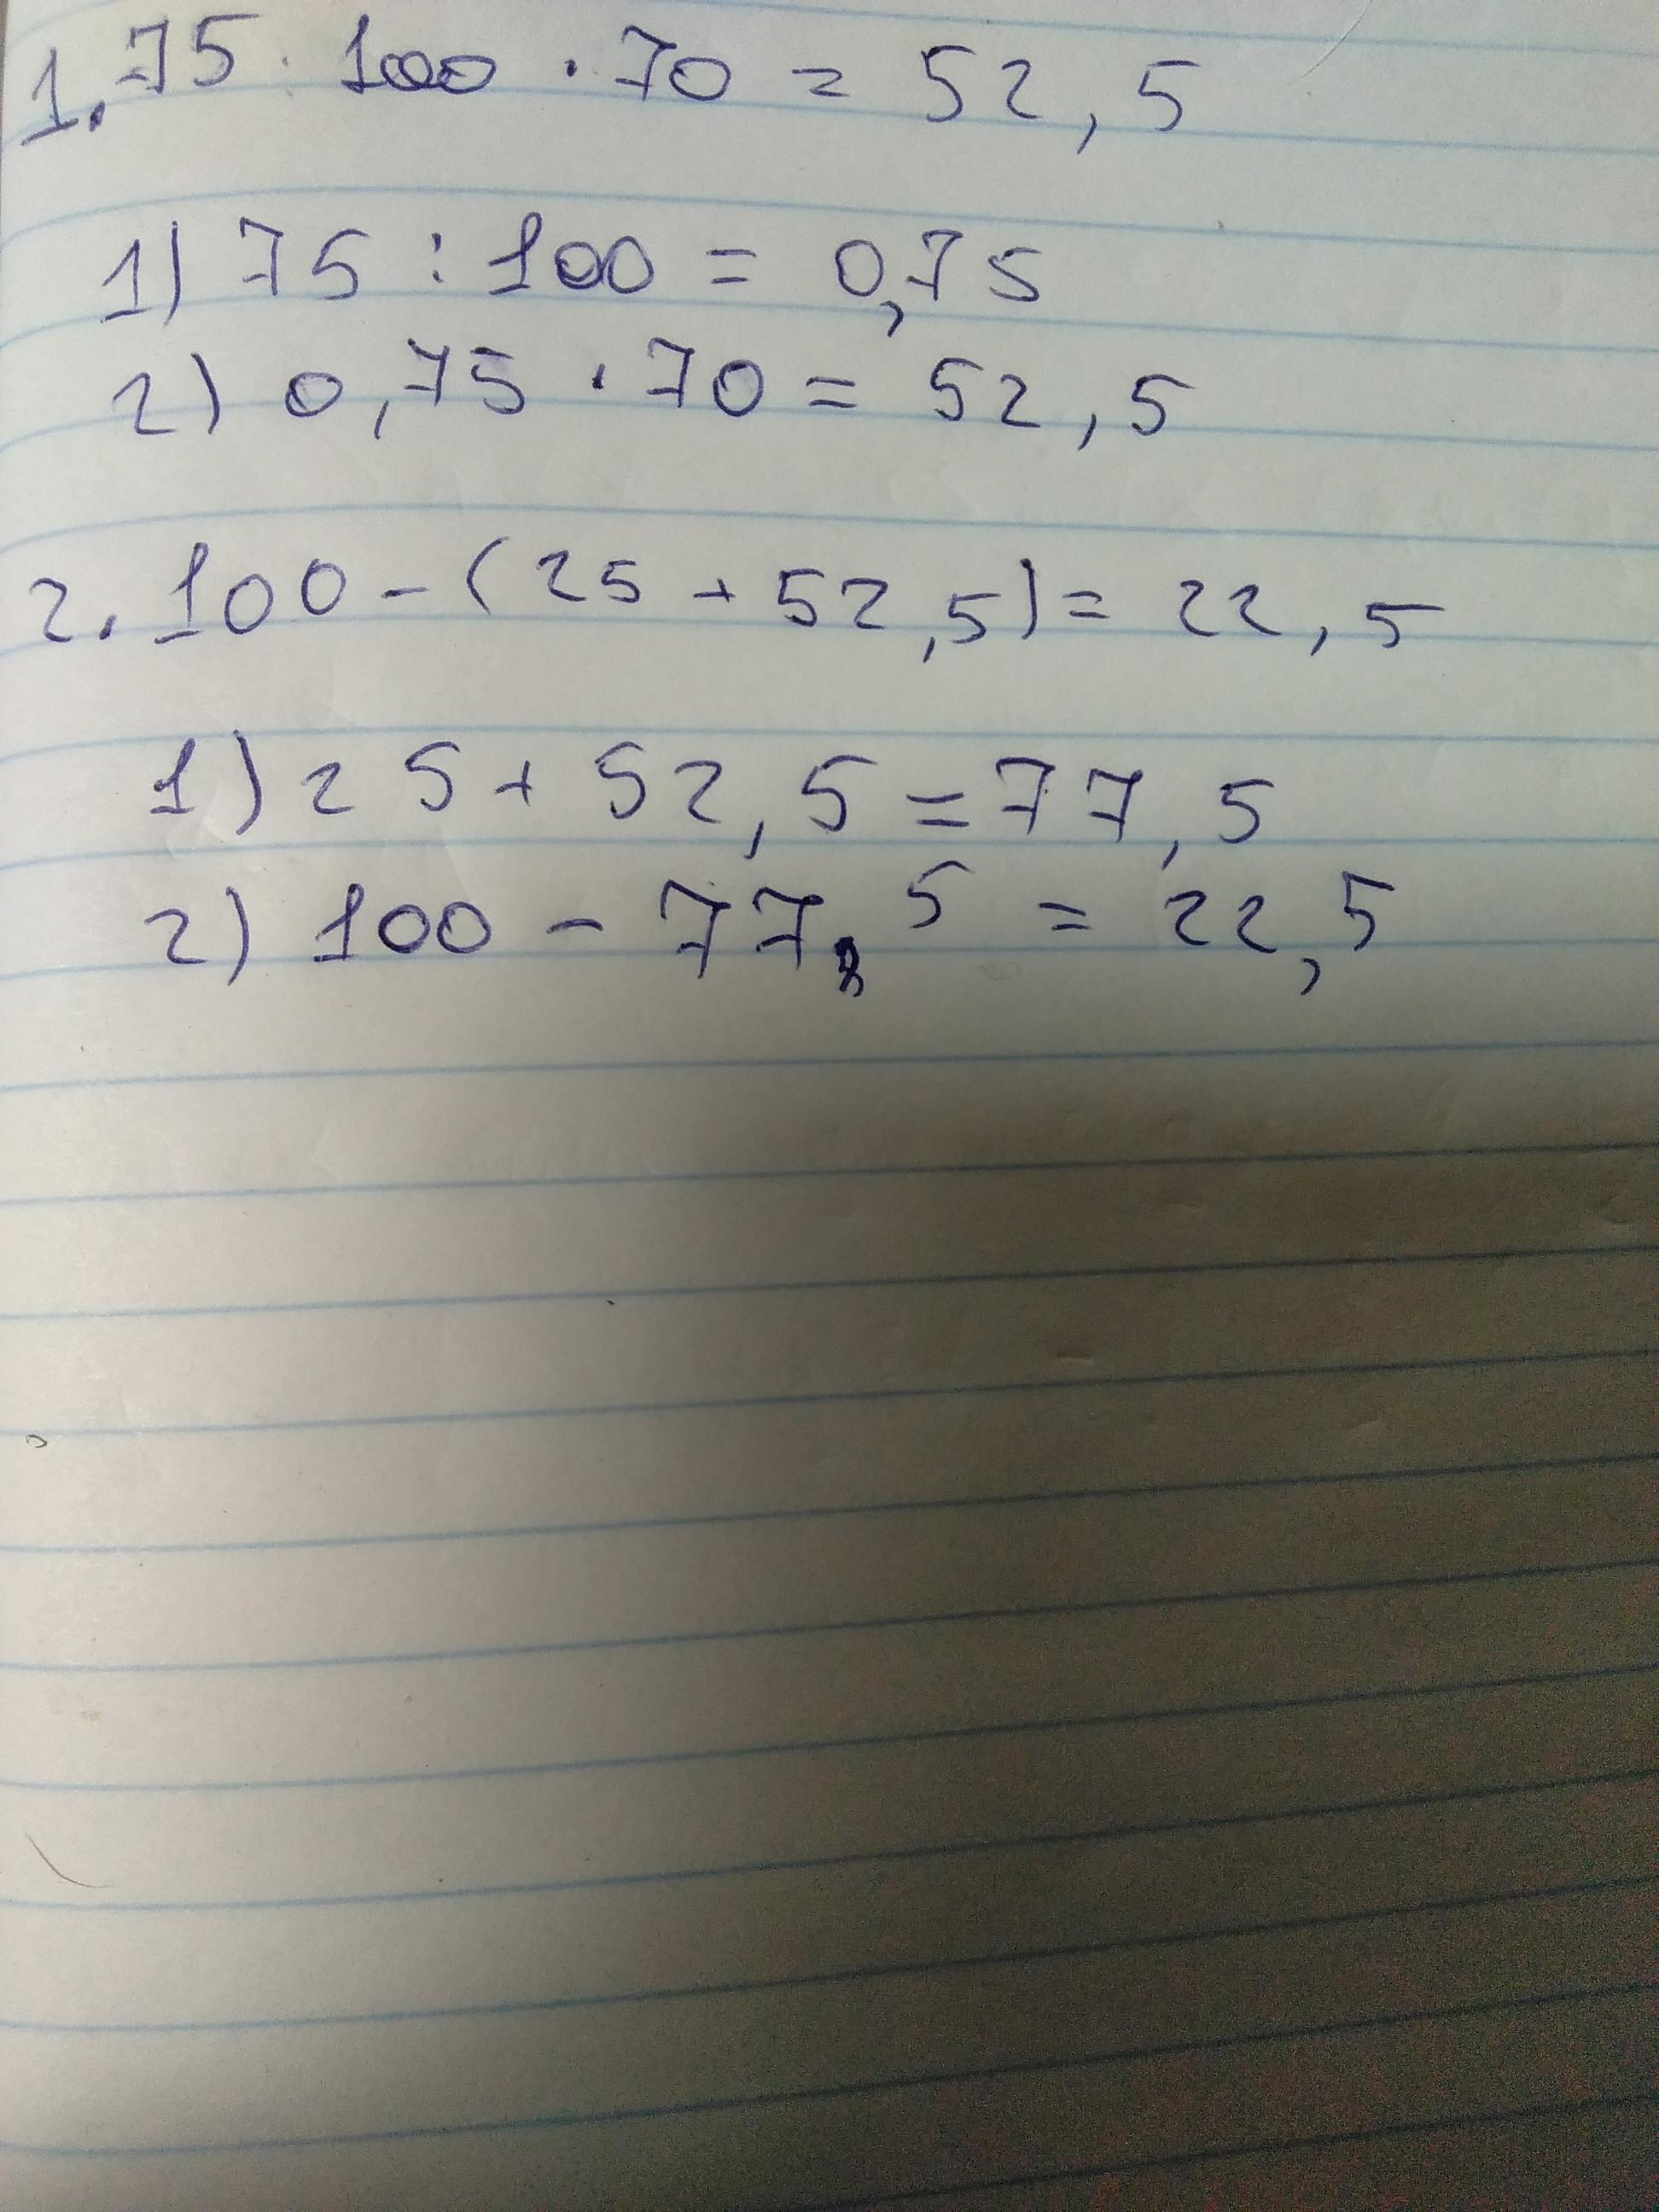 1. 75 · 100 · 70 = 52,5
1) 75 : 100 = 0,75
2) 0,75 · 70 = 52,5
2. 100 - (25 + 52,5) = 22,5
1) 25 + 52,5 = 77,5
2) 100 - 77,5 = 22,5